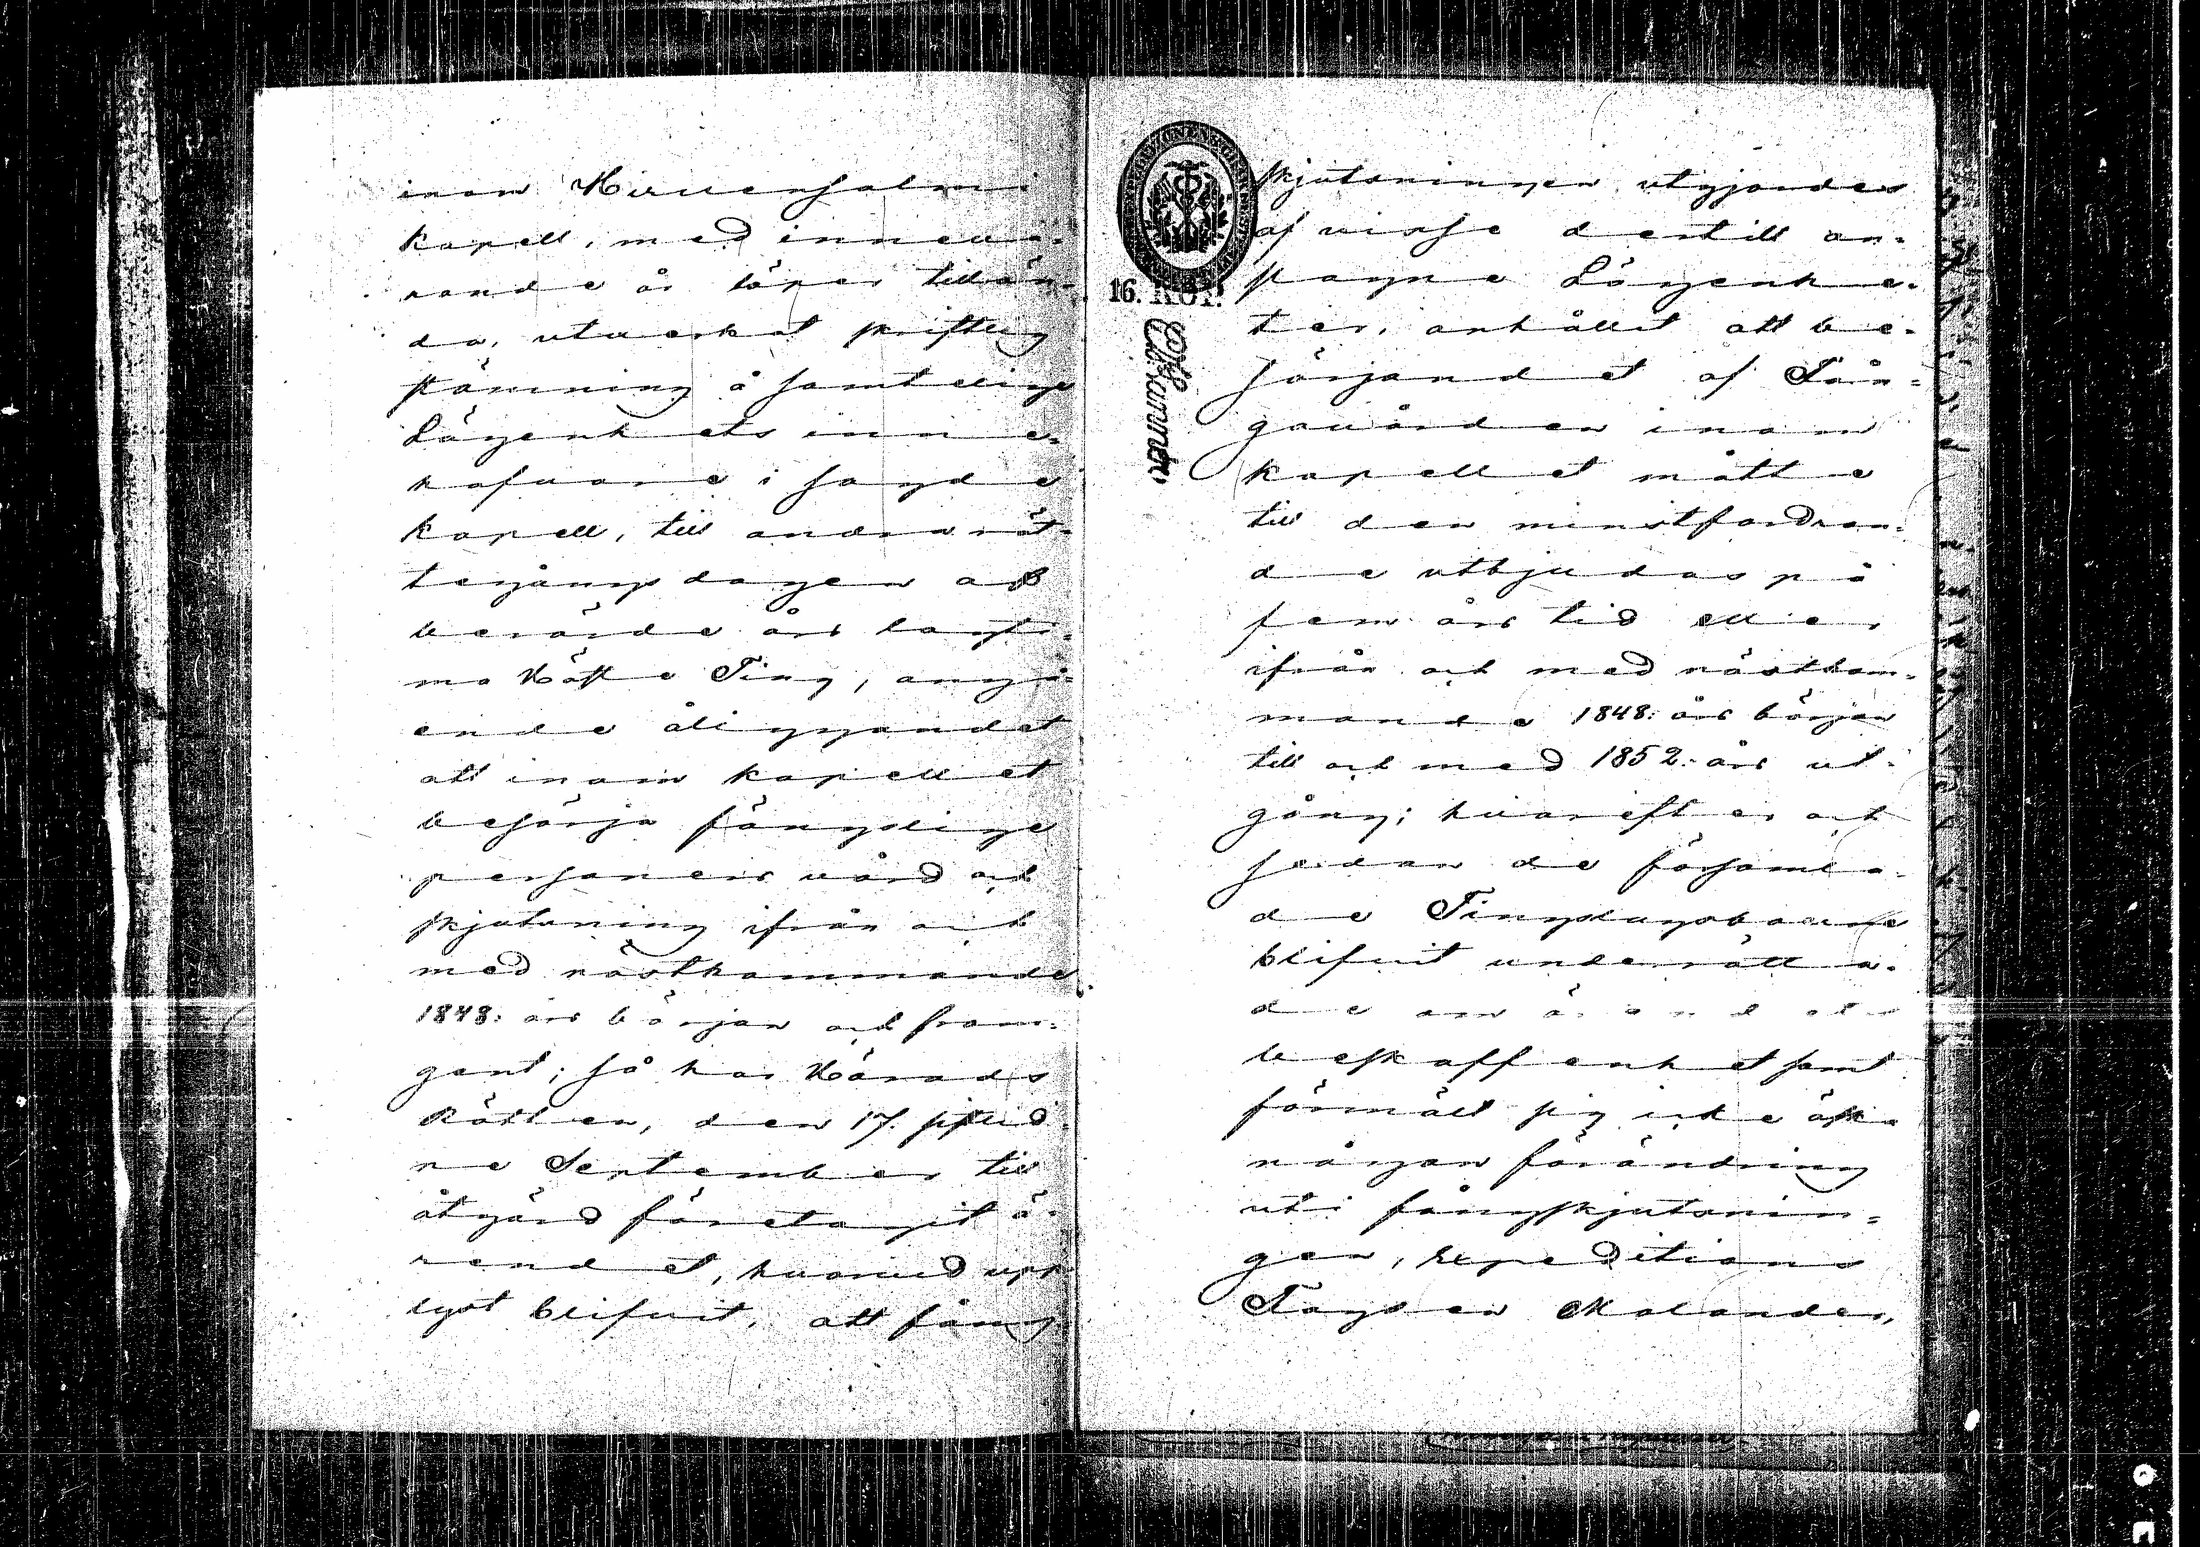 inom Hirvensalmi
kapell, med inneva-
rande år löper tillän-
da, utverkat skriftlig
stämning å samtelige
Lägenhets inne-
hafvare i sagde
kapell, till andra rät-
tegångs dagen af
berörde års lagti-
ma Höste Ting, angå-
ende åliggandet
att inom kapellet
besörja fängslige
personers vård och
skjutsning ifrån och
med nästkommande
1848: års början och fram-
gent; så har Härads
Rätten, den 17. sistlid-
ne September till
åtgärd företagit ä-
rendet, hvarvid upp-
lyst blifvit, att fång-
16. KOP.
skjutsningen utgjordes
af visse dertill an-
slagne Lägenhe-
ter, anhållit att be-
sörjandet af Fån-
gavården inom
kapellet måtte
till den minstfordran-
de utbjudas på
fem års tid eller
ifrån och med nästkom-
mande 1848: års början
till och med 1852. års ut-
gång; hvarefter och
sedan de församla-
de Tingslagsboerne
blifvit underrätta-
de om ärendets
beskaffenhet samt
förmält sig icke äska
någon förändring
uti fångskjutsnin-
gen, expeditions
Fogden Molander,